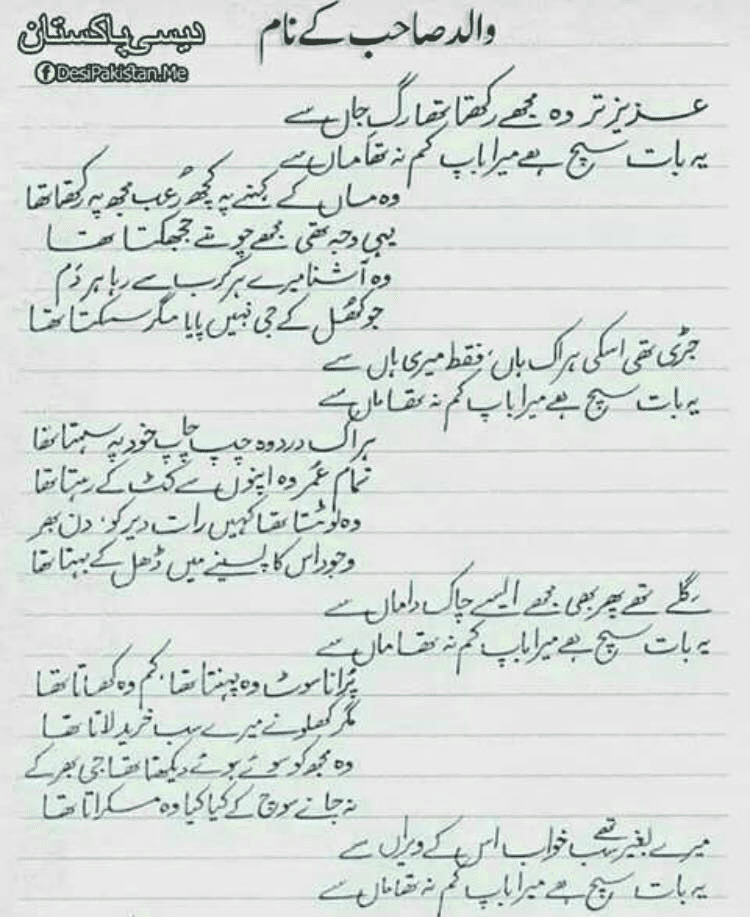 والد صاحب کے نام
دیسی پاکستان
DesiPakistan.Me
عزیز تر وہ مجھے رکھتا تھا رگِ جاں سے
یہ بات سچ ہے میرا باپ کم نہ تھا ماں سے
وہ ماں کے کہنے پہ کچھ رُعب مجھ پہ رکھتا تھا
یہی وجہ تھی مجھے چومتے جھجکتا تھا
وہ آشنا میرے ہر کرب سے رہا ہر دَم
جو کھُل کے جی نہیں پایا مگر سسکتا تھا
جڑی تھی اسکی ہر اک ہاں، فقط میری ہاں سے
یہ بات سچ ہے میرا باپ کم نہ تھا ماں سے
ہر اک درد وہ چپ چاپ خود پہ سہتا تھا
تمام عُمر وہ اپنوں سے کٹ کے رہتا تھا
وہ لوٹتا تھا کہیں رات دیر کو، دن بھر
وجود اس کا پسینے میں ڈھل کے بہتا تھا
گلے تھے پھر بھی مجھے ایسے چاک داماں سے
یہ بات سچ ہے میرا باپ کم نہ تھا ماں سے
پُرانا سوٹ وہ پہنتا تھا، کم وہ کھاتا تھا
مگر کھلونے میرے سب خرید لاتا تھا
وہ مجھ کو سوئے ہوئے دیکھتا تھا جی بھر کے
نہ جانے سوچ کے کیا کیا وہ مسکراتا تھا
میرے بغیر تھے سب خواب اس کے ویراں سے
یہ بات سچ ہے میرا باپ کم نہ تھا ماں سے